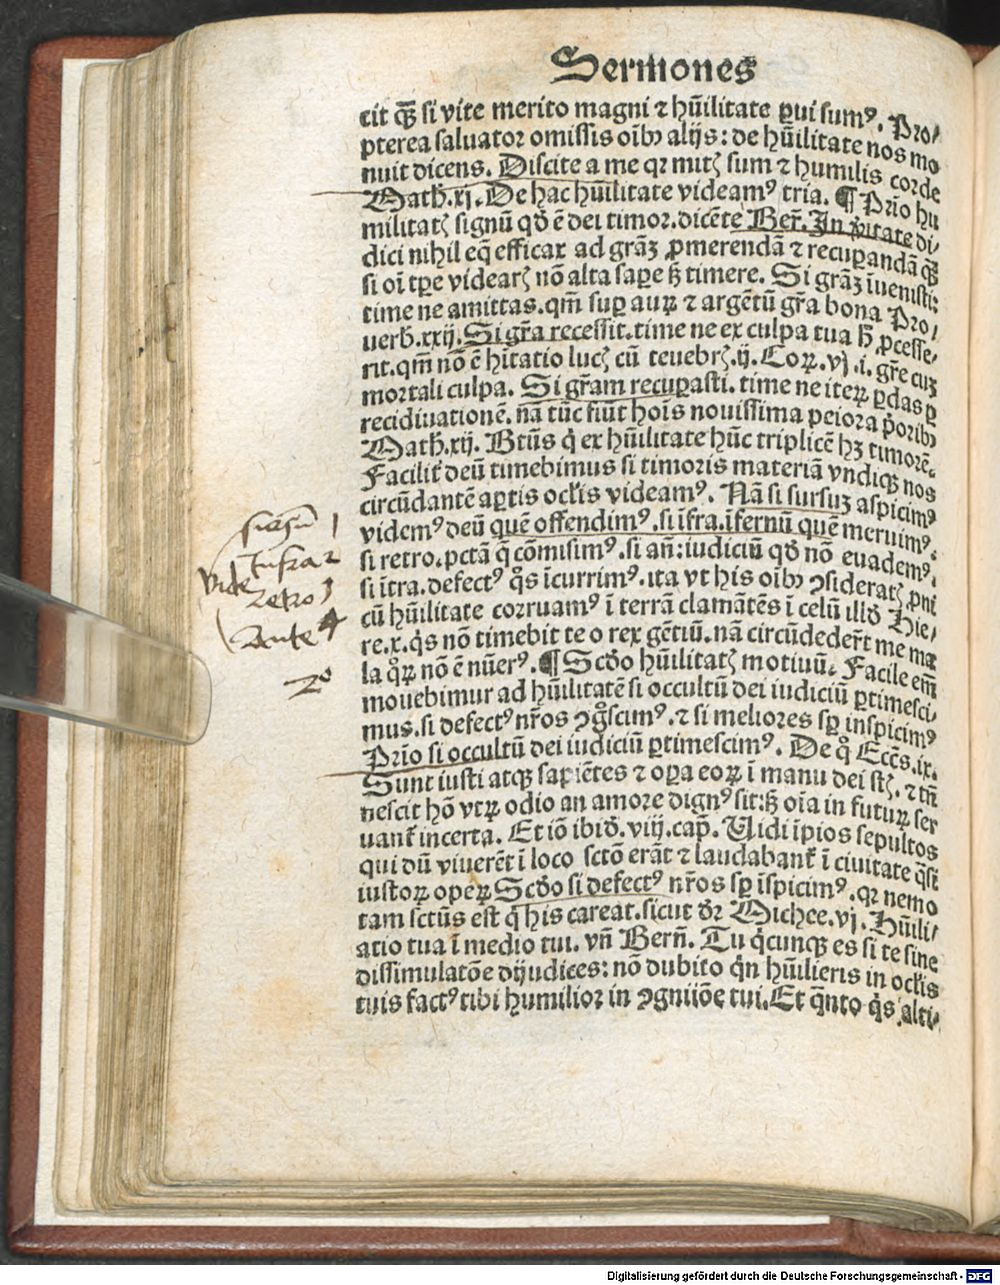 Sermones
cit qȝ si vite merito magni ⁊ hūilitate ꝑui sumꝰ. Pro/
pterea saluator omissis oībꝰ alijs: de hūilitate nos mo
nuit dicens. Discite a me qꝛ mitꝭ sum ⁊ humilis corde
Math̄. xj. De hac hūilitate videamꝰ tria. ¶ Prīo hu
militatꝭ signū qd̄ ē dei timor. dicēte Ber̄. In ꝟitate di/
dici nihil eqꝫ efficax ad grāȝ ꝓmerendā ⁊ recuꝑandā qȝ
si oī tꝑe videarꝭ nō alta saꝑe sꝫ timere. Si grāȝ īuenisti:
time ne amittas. qm̄ suꝑ auꝝ ⁊ argētū gr̄a bona Pro/
uerb̄. xxij. Si gr̄a recessit. time ne ex culpa tua h̄ ꝓcesse/
rit. qm̄ nō ē hītatio lucꝭ cū teuebrꝭ. ij. Coꝝ. vj. i. gr̄e cuȝ
mortali culpa. Si gr̄am recuꝑasti. time ne iteꝝ ꝑdas ꝑ
recidiuationē. nā tūc fiūt hoīs nouissima peiora p̄oribꝰ
Math̄. xij. Btūs q̇ ex hūilitate hūc triplicē hȝ timorē.
Facilit̄ deū timebimus si timoris materiā vndiqꝫ nos
circūdantē aꝑtis ocl̄is videamꝰ. Nā si sursuȝ aspicimꝰ
videmꝰ deū quē offendimꝰ. si īfra. īfernū quē meruimꝰ.
si retro. pctā q̄ cōmisimꝰ. si an̄: iudiciū qd̄ nō euademꝰ.
si ītra. defectꝰ qͦs īcurrimꝰ. ita vt his oībꝰ ꝯsideratꝭ ꝓni
cū hūilitate corruamꝰ ī terrā clamātēs ī celū illd̄ Hie/
re. x. q̇s nō timebit te o rex gētiū. nā circūdeder̄t me ma
la qͦꝝ nō ē nūerꝰ. ¶ Scd̄o hūilitatꝭ motiuū. Facile em̄
mouebimur ad hūilitatē si occultū dei iudiciū ꝑtimesci/
mus. si defectꝰ nr̄os ꝯgͦscimꝰ. ⁊ si meliores sꝑ inspicimꝰ
Prīo si occultū dei iudiciū ꝑtimescimꝰ. De qͦ Eccēs. ix.
Sunt iusti atqꝫ sapiētes ⁊ oꝑa eoꝝ ī manu dei stꝭ. ⁊ tn̄
nescit hō vtꝝ odio an amore dignꝰ sit: sꝫ oīa in futuꝝ ser
uant̄ incerta. Et iō ibid̄. viij. cap̄. Uidi īpios sepultos
qui dū viuerēt ī loco sctō erāt ⁊ laudabant̄ ī ciuitate qͣsi
iustoꝝ opeꝝ Scd̄o si defectꝰ nr̄os sꝑ īspicimꝰ. qꝛ nemo
tam sctūs est q̇ his careat. sicut dr̄ Michee. vj. Hūili/
atio tua ī medio tui. vn̄ Bern̄. Tu q̇cunqꝫ es si te sine
dissimulatōe dijudices: nō dubito q̇n hūilieris in ocl̄is
tuis factꝰ tibi humilior in ꝯgniiōe tui. Et qͣnto q̇s alti/
sursū 1
Infra 2
Vide
Retro 3
Ante 4
2º
Digitalisierung gefördert durch die Deutsche Forschungsgemeinschaft - DFG